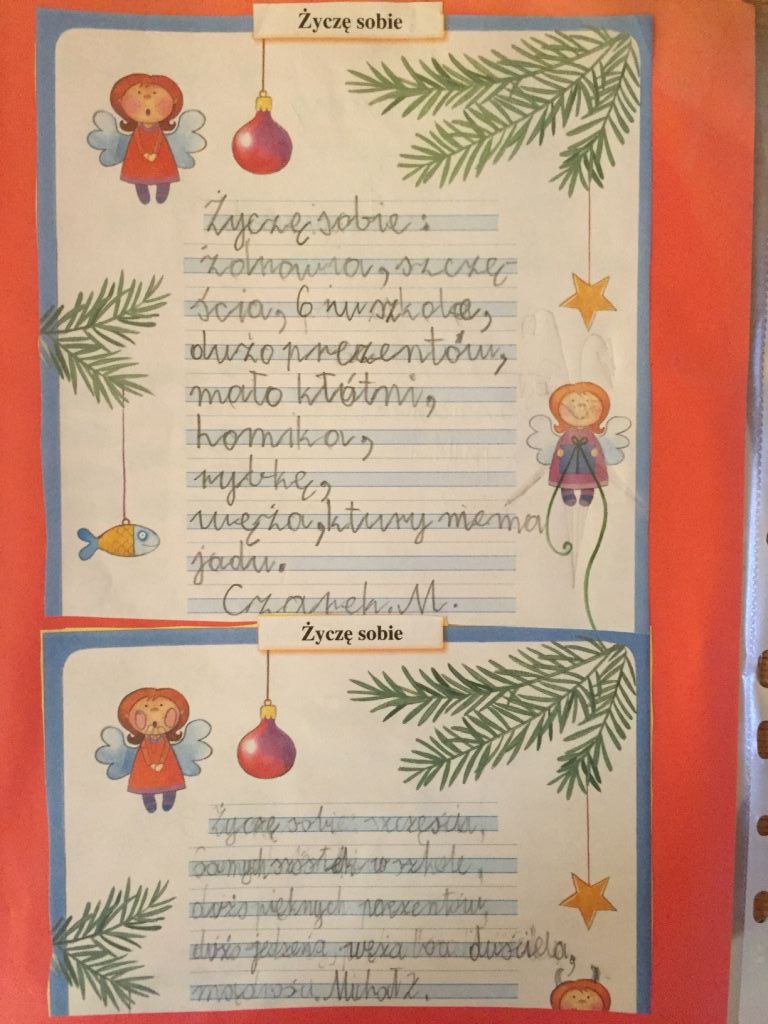 Życzę sobie
Życzę sobie:
zdrowia, szczę
ścia, 6 w szkole,
dużo prezentów,
mało kłótni,
homika,
rybkę,
węża, ktury niema
jadu.
Czarek. M.
Życzę sobie
Życzę sobie szczęścia,
samych szóstek w szkole,
dużo pięknych prezentów,
dużo jedzena, węża boa dusiciela,
mądrości. Michał Ż.